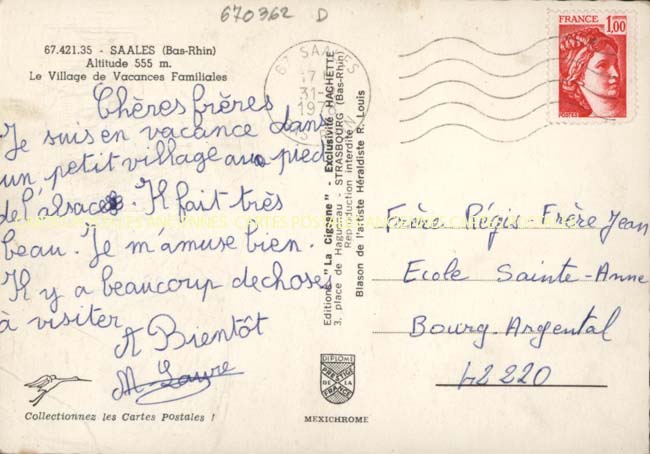 670362 D
67.421.35 - SAALES (Bas-Rhin)
Altitude 555 m.
Le Village de Vacances Familiales
Chères frères
Je suis en vacance dans
un petit village au pied
de l'alsace. Il fait très
beau. Je m'amuse bien.
Il y a beaucoup de choses
à visiter
A Bientôt
M. Laure
Collectionnez les Cartes Postales !
67 SAALES
17 H
31-
Editions "La Cigogne" - Exclusivité HACHETTE
3, place de Haguenau - STRASBOURG (Bas-Rhin)
Reproduction interdite
Blason de l'artiste Héraldiste R. Louis
DIPLOME
PRESTIGE
DE LA
FRANCE
MEXICHROME
FRANCE
1,00
POSTES
Frère Régis-Frère Jean
Ecole Sainte-Anne
Bourg-Argental
42220